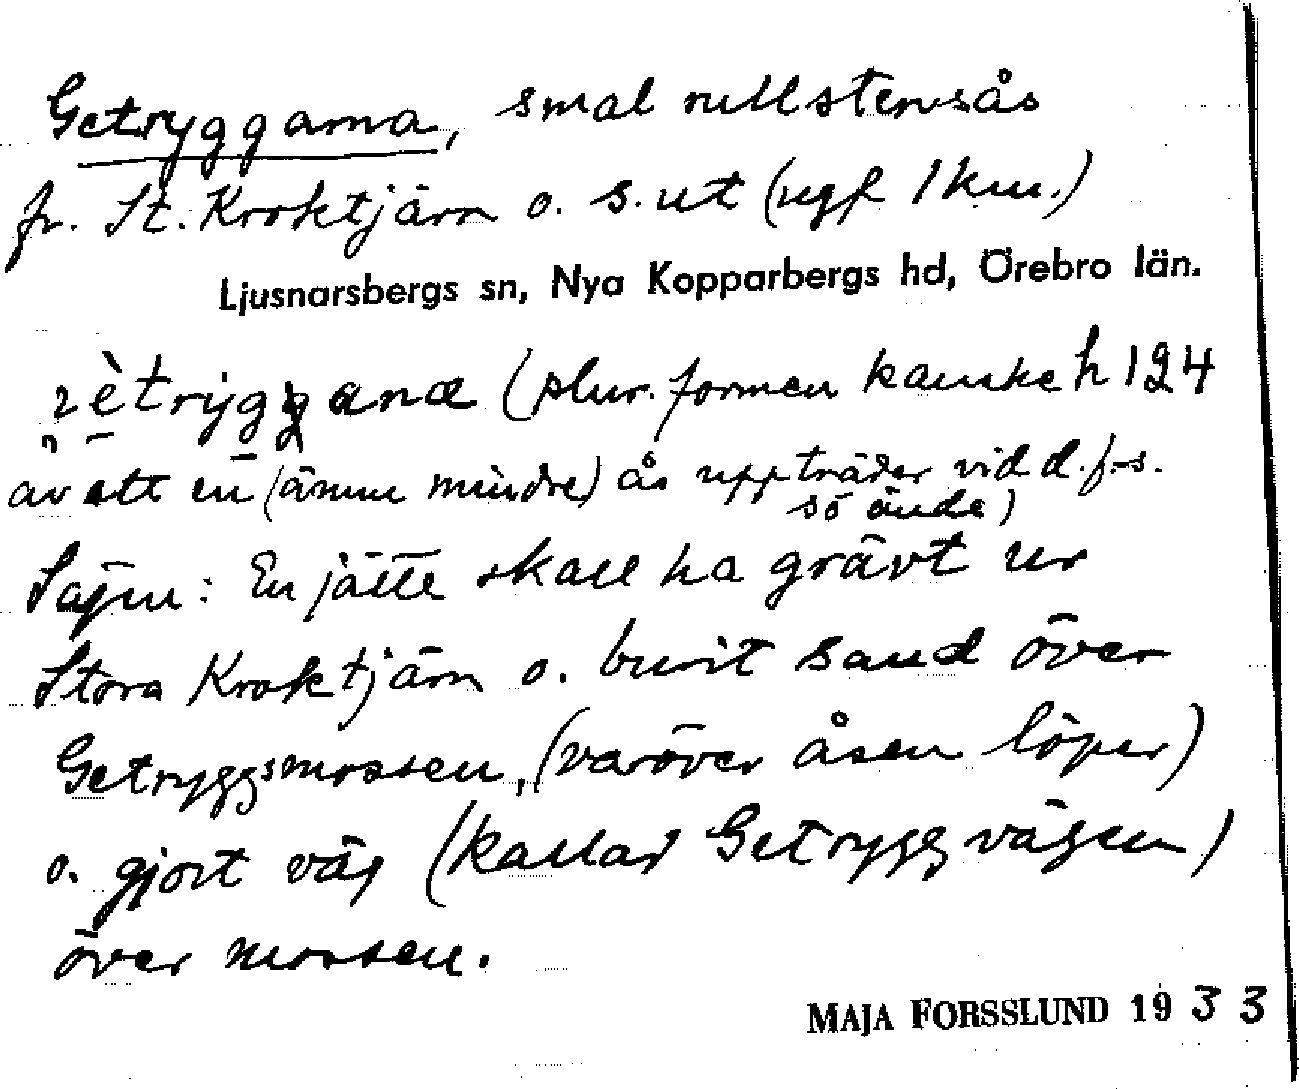 Getryggarna, smal rullstensås
fr. St. Kroktjärn o. s. ut (ugf 1 km.)
Ljusnarsbergs sn, Nya Kopparbergs hd, Örebro län.
(plur. formen kanske h 124
av att en (ännu mindre) ås uppträder vid d. f-s.
sö ände)
Sägen: En jätte skall ha grävt ur
Stora Kroktjärn o. burit sand över
Getryggsmossen, (varöver åsen löper)
o. gjort väg (kallad Getryggvägen)
över mossen.
MAJA FORSSLUND 1933